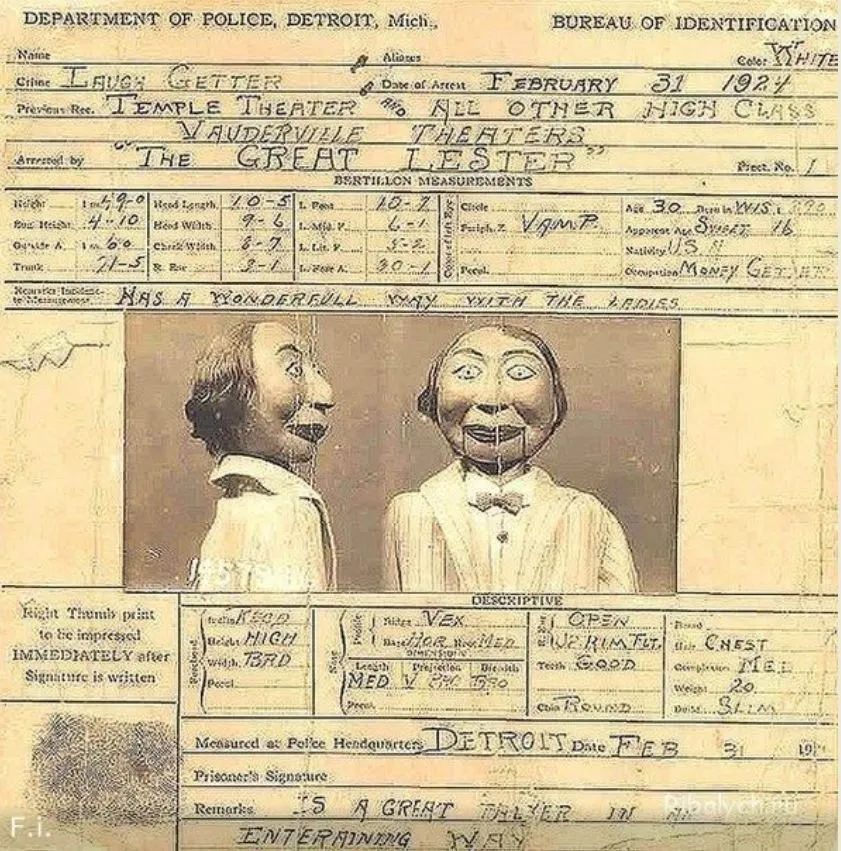 DEPARTMENT OF POLICE, DETROIT, Mich., BUREAU OF IDENTIFICATION
Name Aliases Color WHITE
Crime LAUGH GETTER Date of Arrest FEBRUARY 31 1924
Previous Rec. TEMPLE THEATER AND ALL OTHER HIGH CLASS
VAUDERVILLE THEATERS
Arrested by "THE GREAT LESTER" Prect. No. 1
BERTILLON MEASUREMENTS
Height Head Length 10-5 L. Foot 10-7 Circle Age 30 Born in WIS.
Eng. Height 4-10 Head Width 9-6 L. Mid. F. 6-1 Periph. Z. VAMP. Apparent Age SWEET 16
Outside A. Cheek Width 8-7 L. Lit. F. 5-2 Nativity U.S.A
Trunk 71-5 R. Ear 3-1 L. Fore A. 30-1 Pecul. Occupation MONEY GETTER
Remarks Incident to Measurement HAS A WONDERFULL WAY WITH THE LADIES
DESCRIPTIVE
Right Thumb print
to be impressed
IMMEDIATELY after
Signature is written
Forehead
Height HIGH
Width BRD
Pecul.
Nose
Profile
Ridge VEX
Base HOR Root MED
DIMENSIONS
Length Projection Breadth
MED V BRO
Pecul.
OPEN
Teeth GOOD
Chin ROUND
Beard
Hair CHEST
Complexion MED
Weight 20
Build SLIM
Measured at Police Headquarters DETROIT Date FEB 31 19
Prisoner's Signature
Remarks IS A GREAT TALKER IN AN
ENTERAINING WAY
Ribalych.ru
F.i.